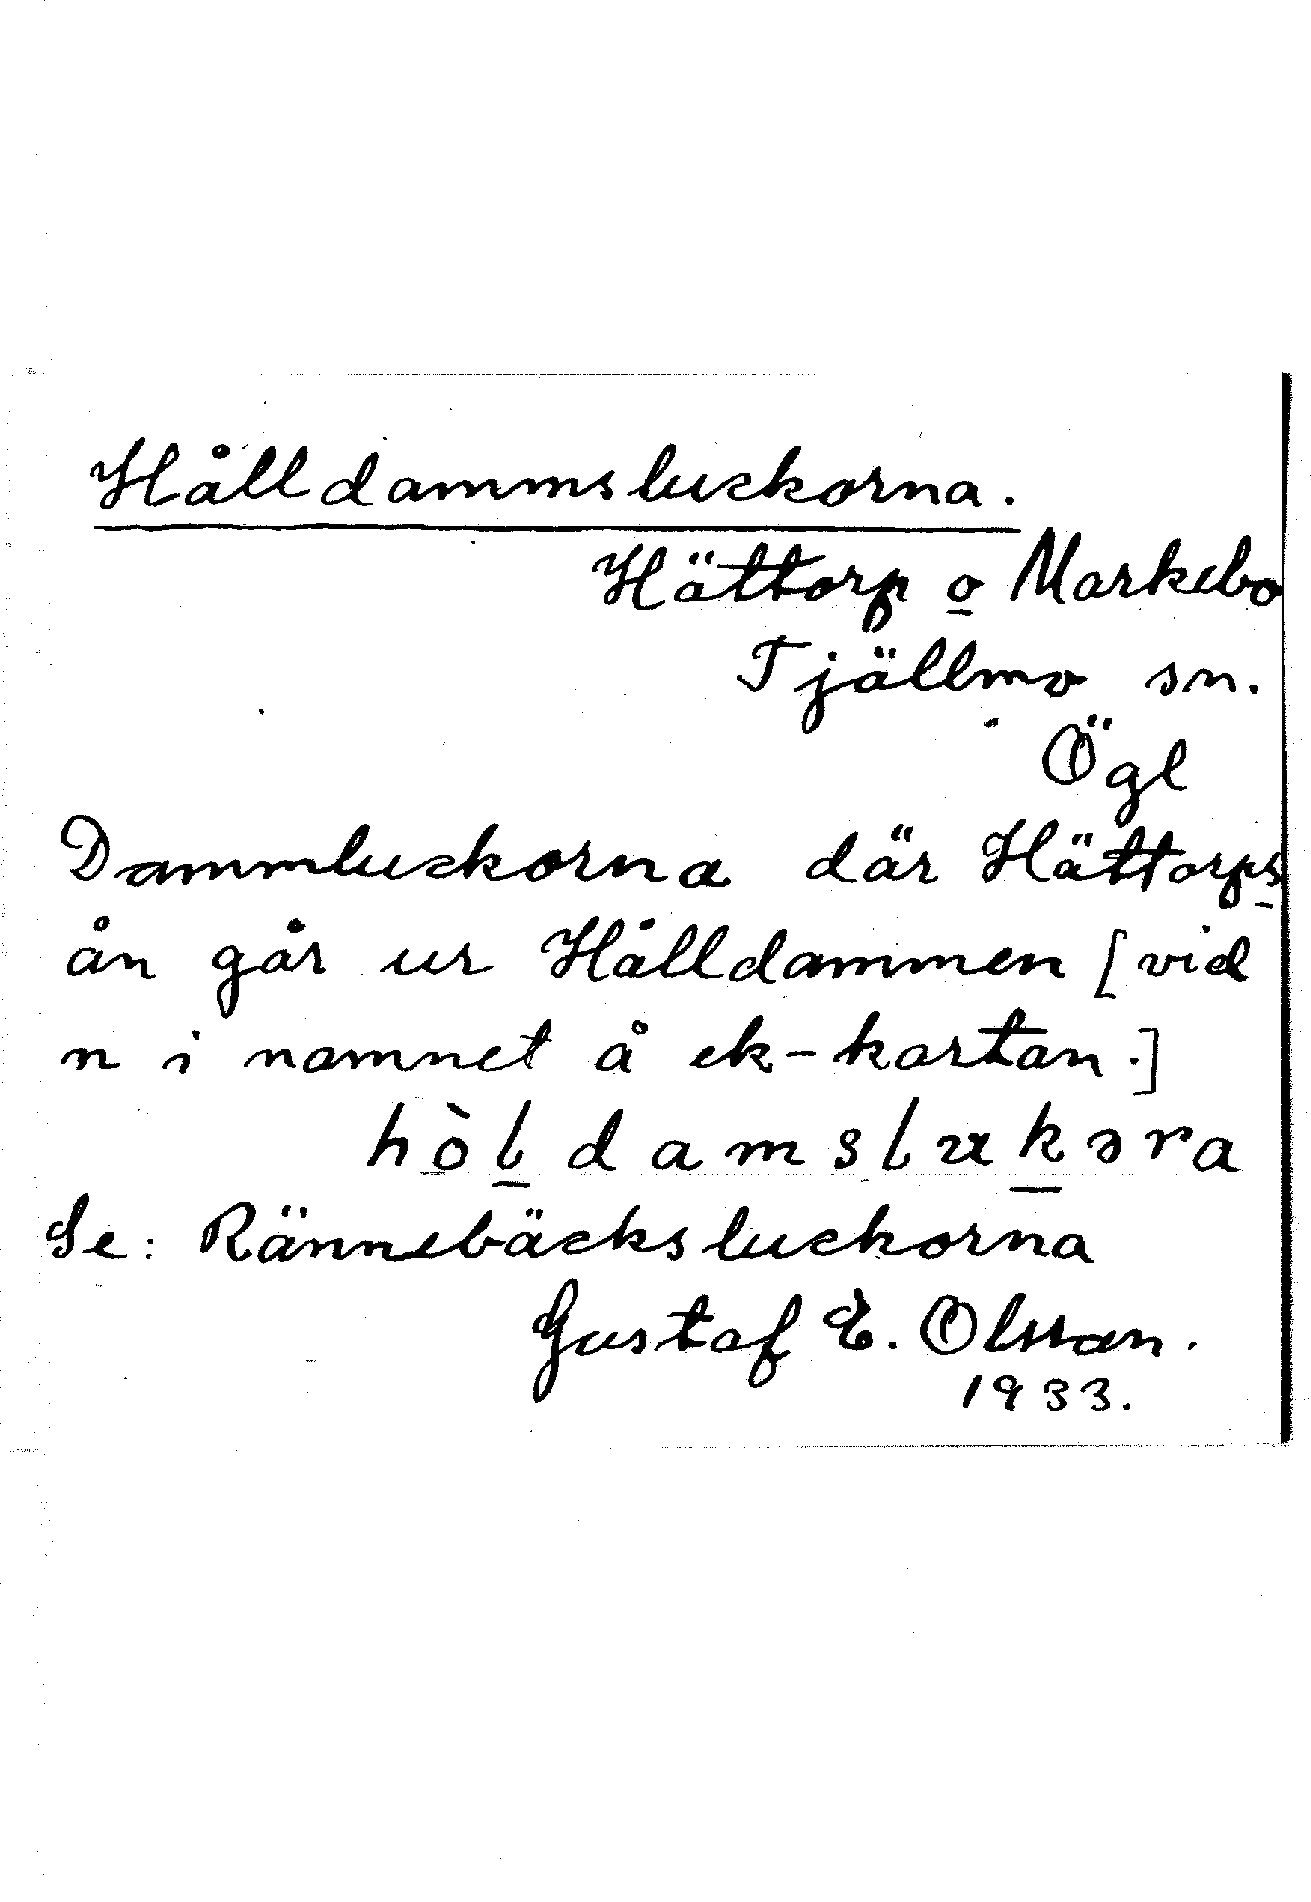 Hålldammsluckorna.
Hättorp o Markebo
Tjällmo sn.
Ögl
Dammluckorna där Hättorps
ån går ur Hålldammen [vid
n i namnet å ek-kartan.]
hòldamslukəra
Se: Rännebäcksluckorna
Gustaf E. Olsson.
1933.